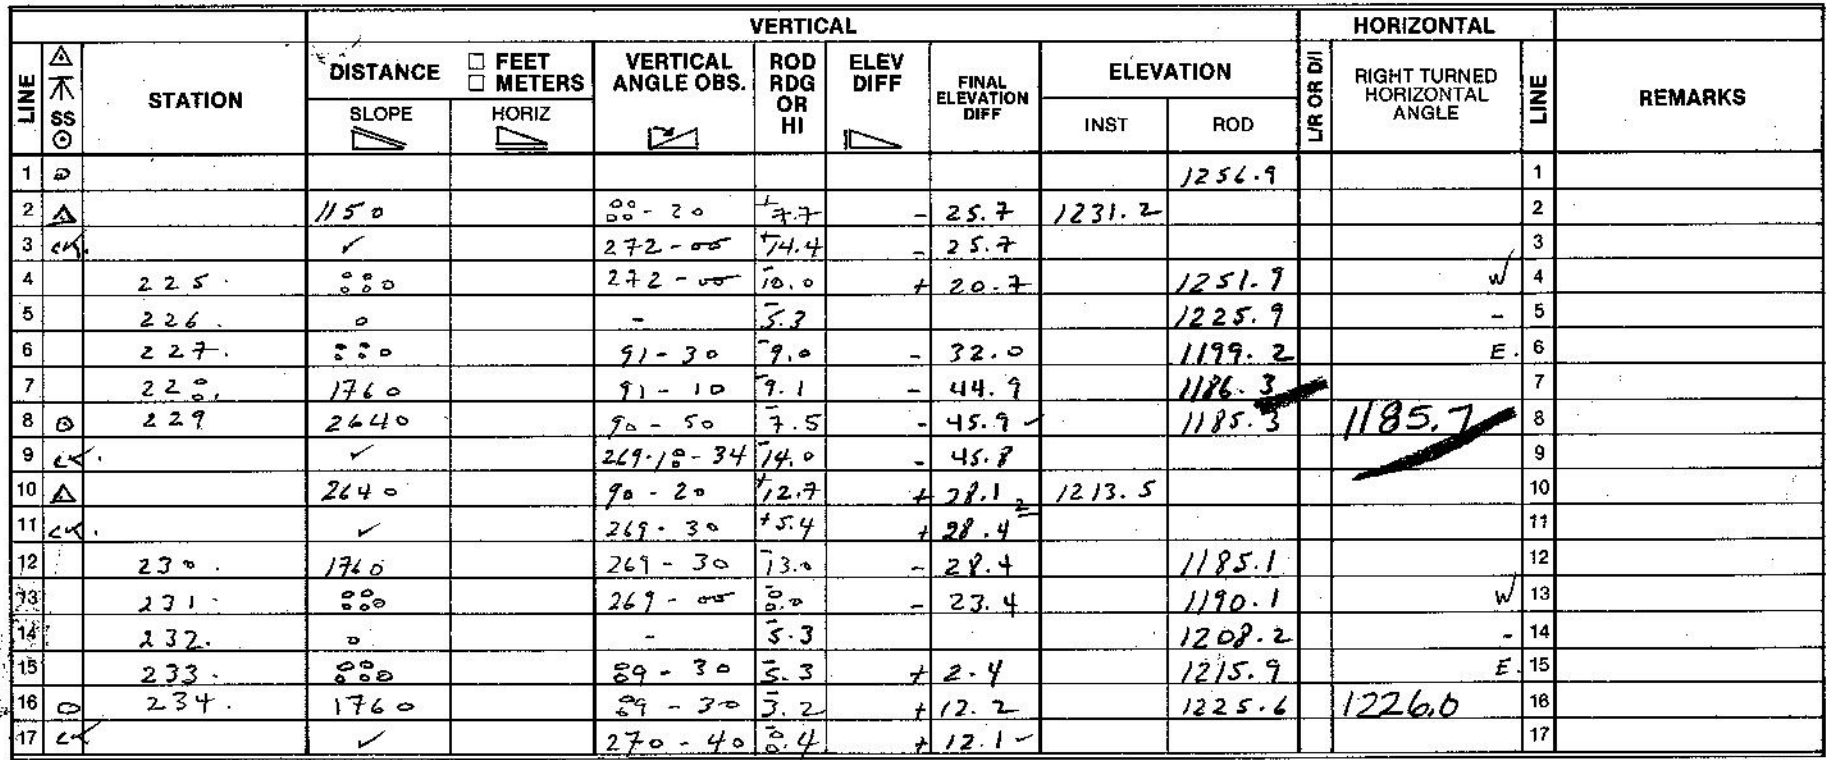 VERTICAL HORIZONTAL
LINE SS STATION DISTANCE FEET METERS VERTICAL ANGLE OBS. ROD RDG OR HI ELEV DIFF FINAL ELEVATION DIFF ELEVATION L/R OR D/I RIGHT TURNED HORIZONTAL ANGLE LINE REMARKS
SLOPE HORIZ INST ROD
1 1256.9 1
2 1150 88-20 +7.7 - 25.7 1231.2 2
3 CK. ✓ 272-00 +4.4 - 25.7 3
4 225. 880 272-00 -10.0 + 20.7 1251.9 W 4
5 226. 0 - -5.3 1225.9 - 5
6 227. 880 91-30 -9.0 - 32.0 1199.2 E. 6
7 228. 1760 91-10 -9.1 - 44.9 1186.3 7
8 229 2640 90-50 -7.5 - 45.9 ✓ 1185.3 1185.7 8
9 CK. ✓ 269-18-34 14.0 - 45.8 9
10 2640 90-20 +12.7 + 28.1 2 1213.5 10
11 CK. ✓ 269-30 +5.4 + 28.4 11
12 230. 1760 269-30 -13.0 - 28.4 1185.1 12
13 231. 880 269-00 -8.0 - 23.4 1190.1 W 13
14 232. 0 - -5.3 1208.2 - 14
15 233. 880 89-30 -5.3 + 2.4 1215.9 E. 15
16 234. 1760 89-30 -3.2 + 12.2 1225.6 1226.0 16
17 CK ✓ 270-40 -8.4 + 12.1 ✓ 17